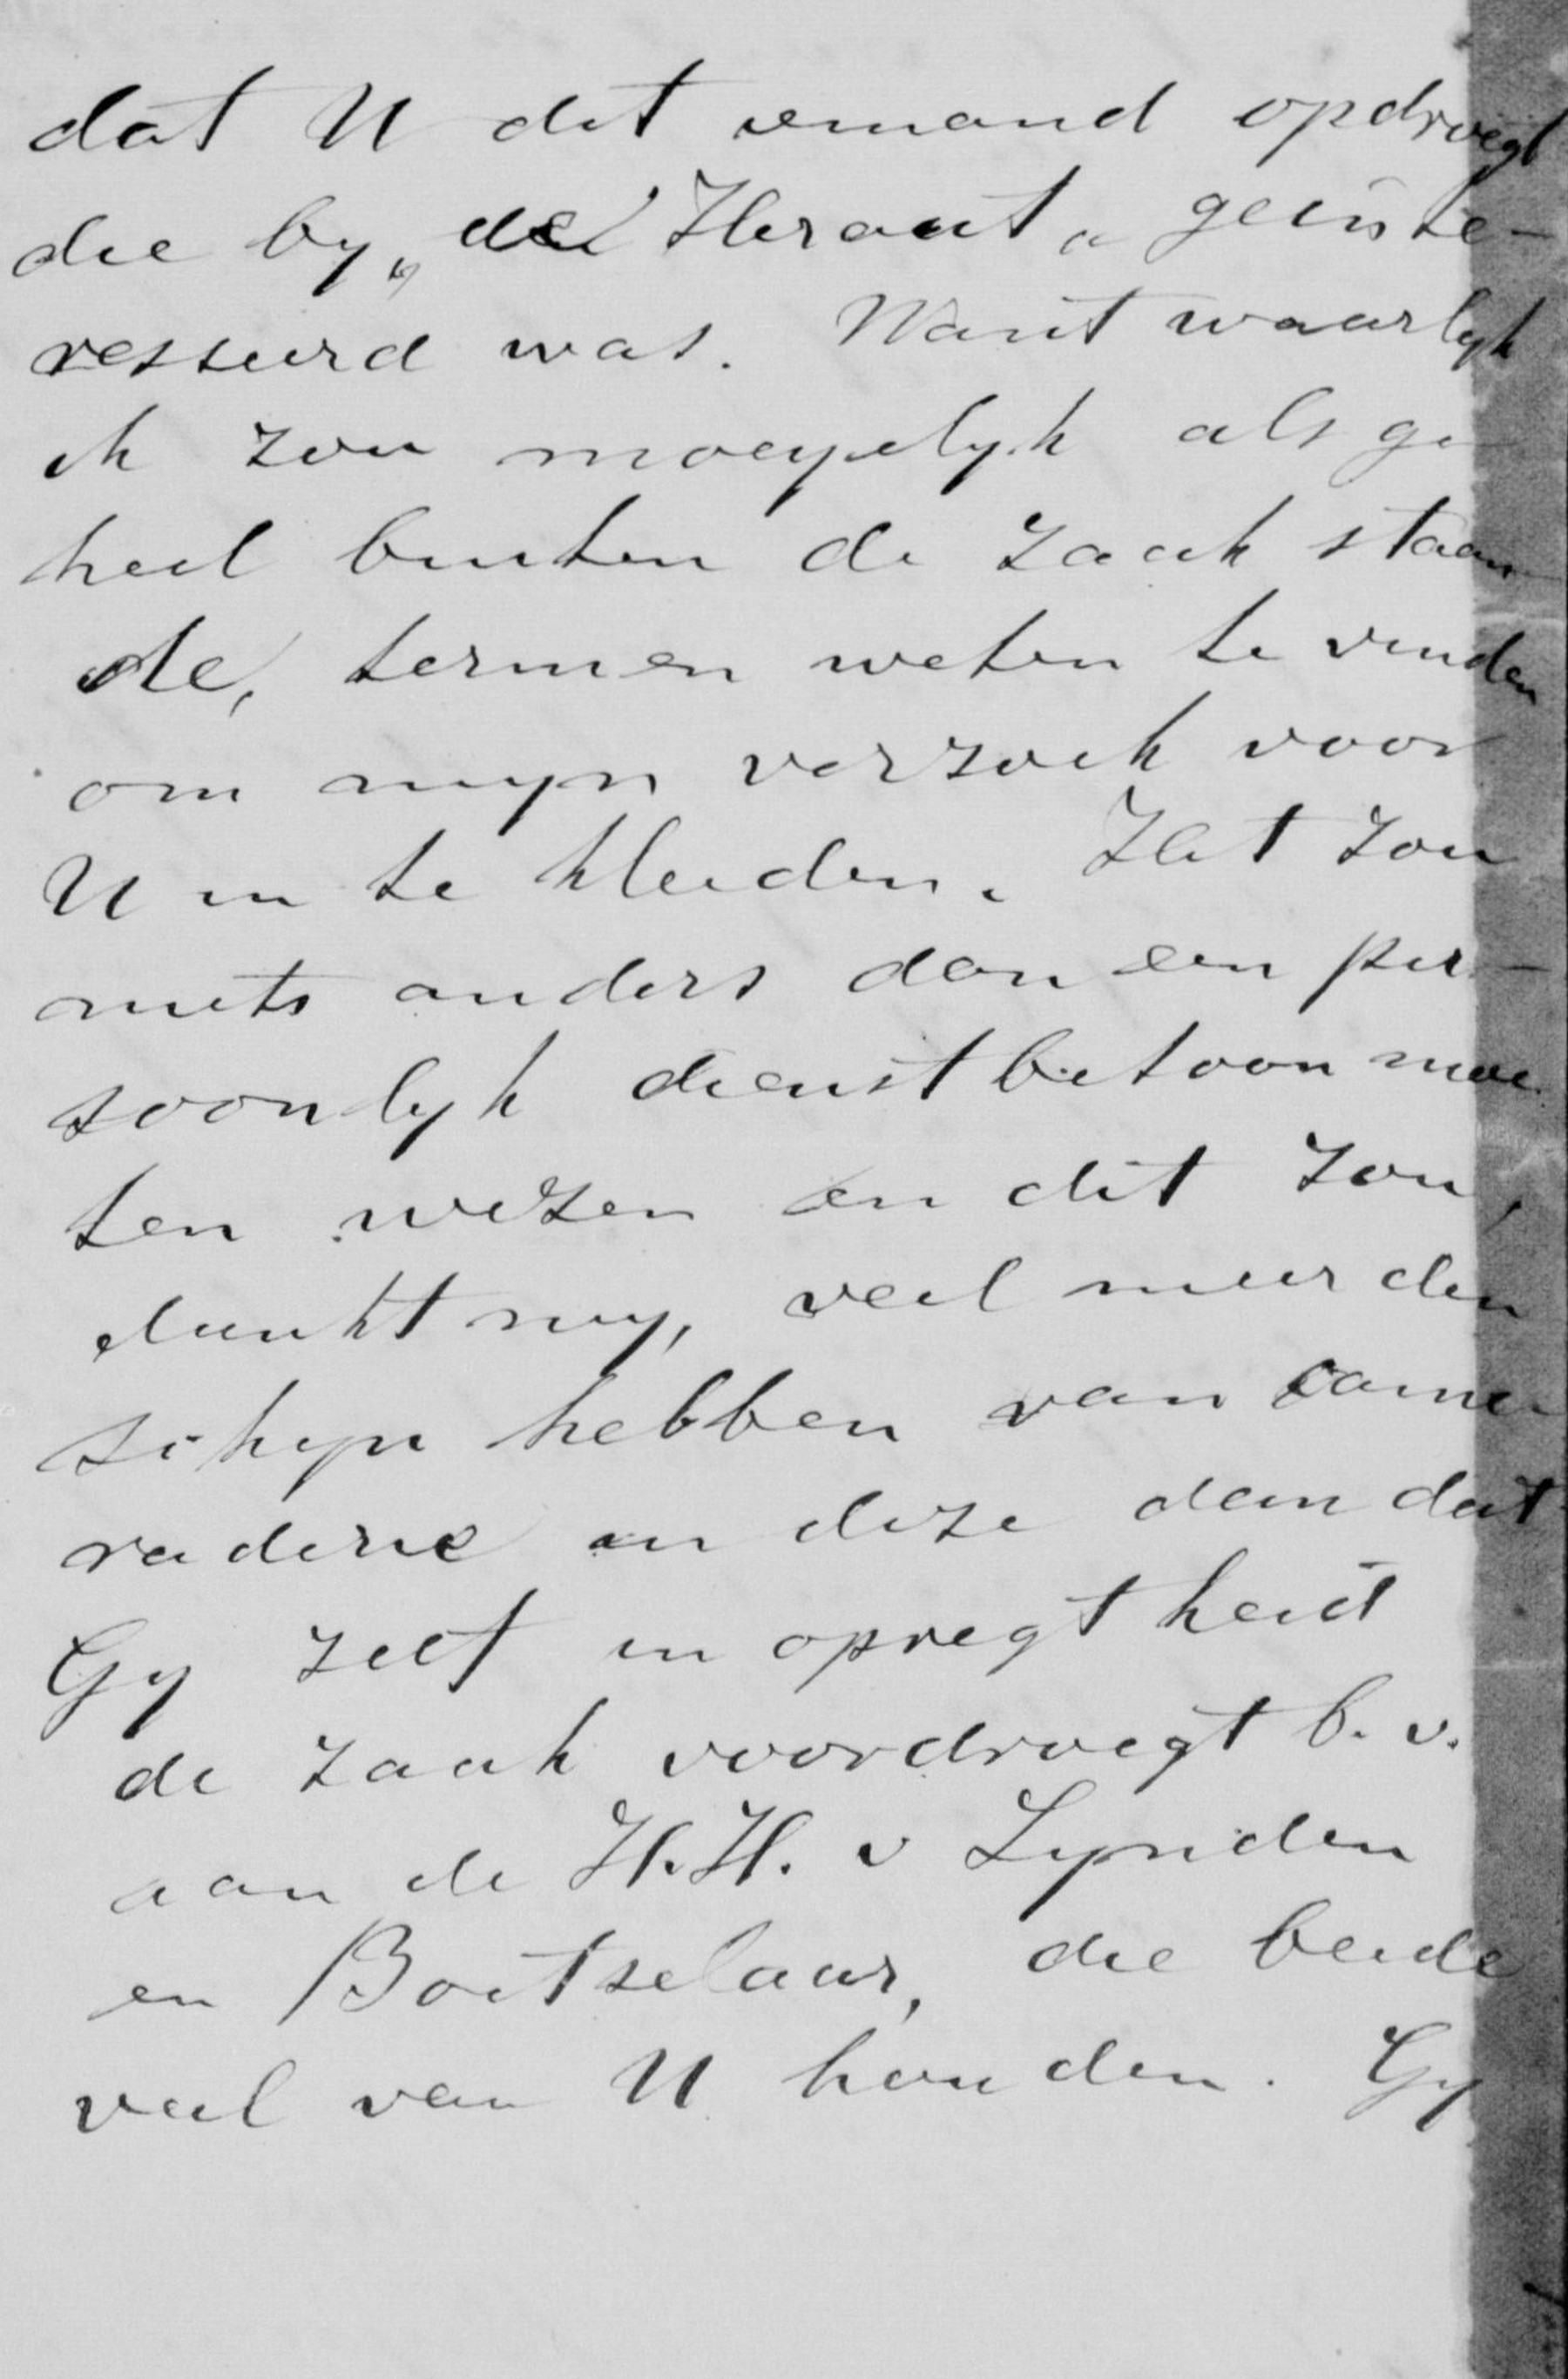 dat U dit iemand opdroegt
die by „de Heraut" geïnte-
resseerd was. Want waarlyk
ik zou moeyelyk als ge-
heel buiten de zaak staan
de, termen weten te vinden
om myn verzoek voor
U in te kleiden. Het zou
niets anders dan een per-
soonlyk dienstbetoon moe
ten wezen en dit zou,
dunkt my, veel meer den
schyn hebben van came-
raderie in deze dan dat
Gy zelf in opregtheid
de zaak voordroegt b.v.
aan de H.H. v Lynden
en Boetselaar, die beide
veel van U houden. Gy